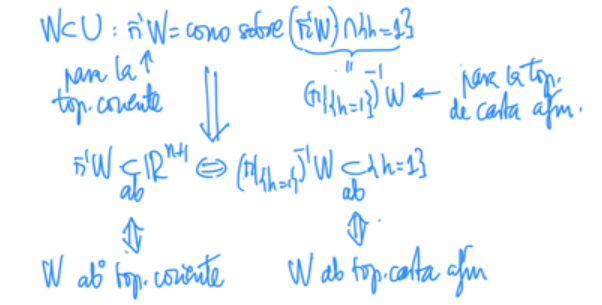 W⊂U : π⁻¹W = cono sobre (π⁻¹W) ∩ {h=1}
para la ↑ top. cociente
"
(π|{h=1})⁻¹W ← para la top. de carta afín.
⇓
π⁻¹W ⊂ab ℝⁿ⁺¹ ⇔ (π|{h=1})⁻¹W ⊂ab {h=1}
⇕ ⇕
W abº top. cociente W ab top. carta afín